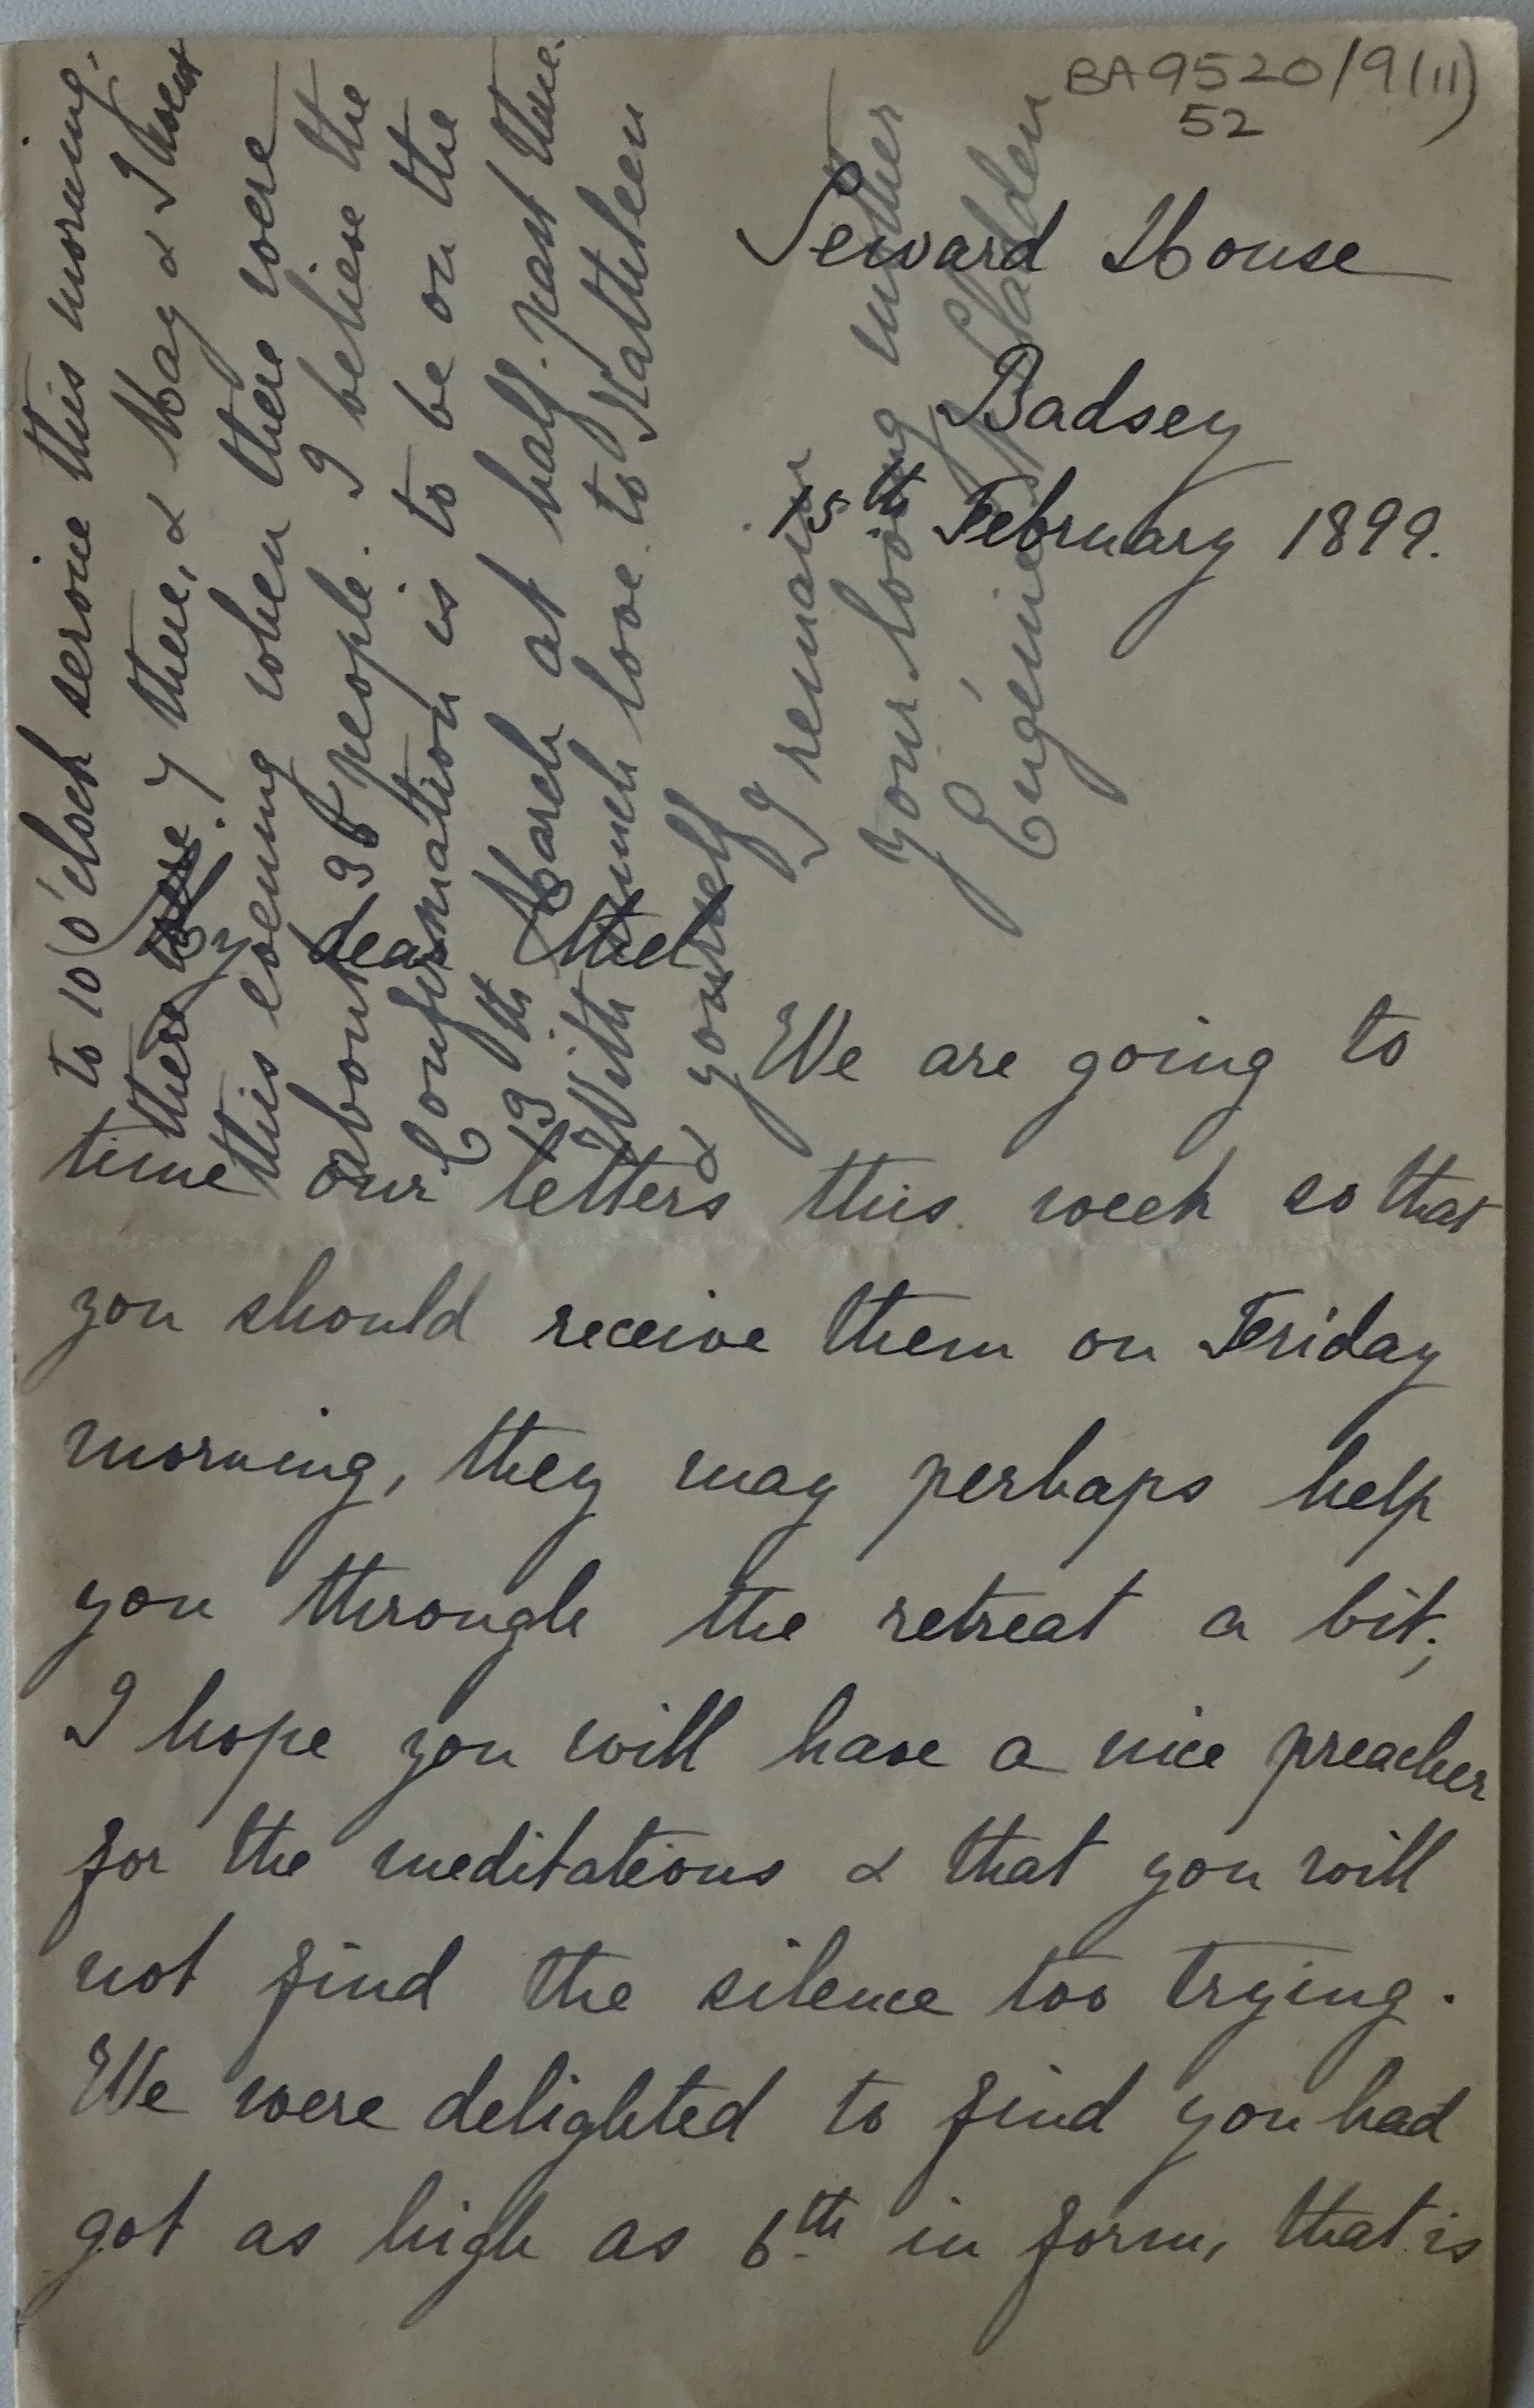 BA9520/9(11)
52
Seward House
Badsey
15th February 1899.
My dear Ethel
We are going to
time our letters this week so that
you should receive them on Friday
morning, they may perhaps help
you through the retreat a bit;
I hope you will have a nice preacher
for the meditations & that you will
not find the silence too trying.
We were delighted to find you had
got as high as 6th in form, that is
to 10 o'clock service this morning.
there were 7 there, & May & I went
this evening when there were
about 36 people. I believe the
Confirmation is to be on the
9th March at half-past three.
With much love to Kathleen
& yourself
I remain
Your loving mother
Eugénie Sladden